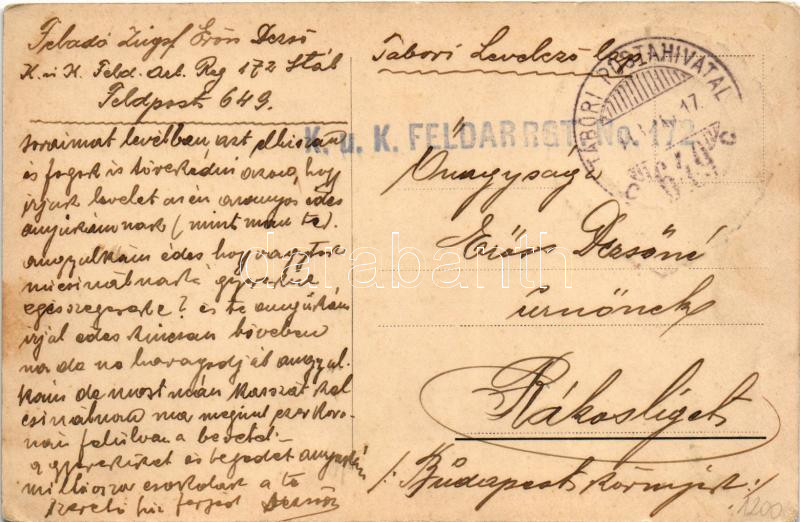 Feladó Zugsf Erőss Dezső
K. u. K. Feld. Art. Reg 172 Stáb
Feldpost 649.
soraimat levélben azt elhiszem
és fogok is törekedni arra, hogy
írjak levelet az én aranyos édes
anyukámnak (mint most te).
angyalkám édes hogy vagytok
mit csinálnak a gyerekek
egészségesek? és te anyukám
írjál édes kincsem bővebben
na de ne haragudj át angyal-
kám de most már kasszát kel
csinálnom ma megint ezer koro-
nán felül van a bevétel
a gyerekeket és tégedet anyukám
milliószor csókollak a te
szerető férjed Dezső
Tábori Levelező lap
TÁBORI POSTAHIVATAL
17
649
K. u. K. FELDARRGT. No. 172
Őnagysága
Erőss Dezsőné
úrnőnek
Rákosliget
/: Budapest környéke :/
darabanth
1200